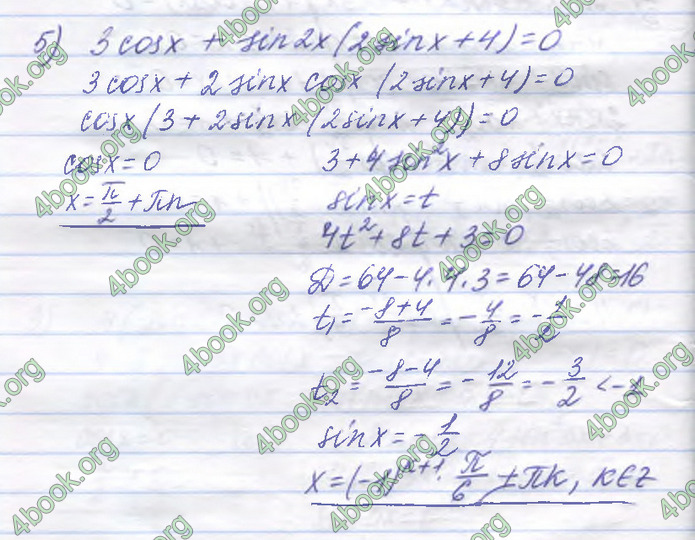 5) 3cosx + sin2x(2sinx+4)=0
3cosx + 2sinx cosx (2sinx+4)=0
cosx(3+2sinx(2sinx+4))=0
cosx=0
x=π/2+πn
3+4sin²x+8sinx=0
sinx=t
4t²+8t+3=0
D=64-4·4·3=64-48=16
t₁=(-8+4)/8=-4/8=-1/2
t₂=(-8-4)/8=-12/8=-3/2<-1
sinx=-1/2
x=(-1)ᵏ⁺¹·π/6+πk, k∈Z
4book.org